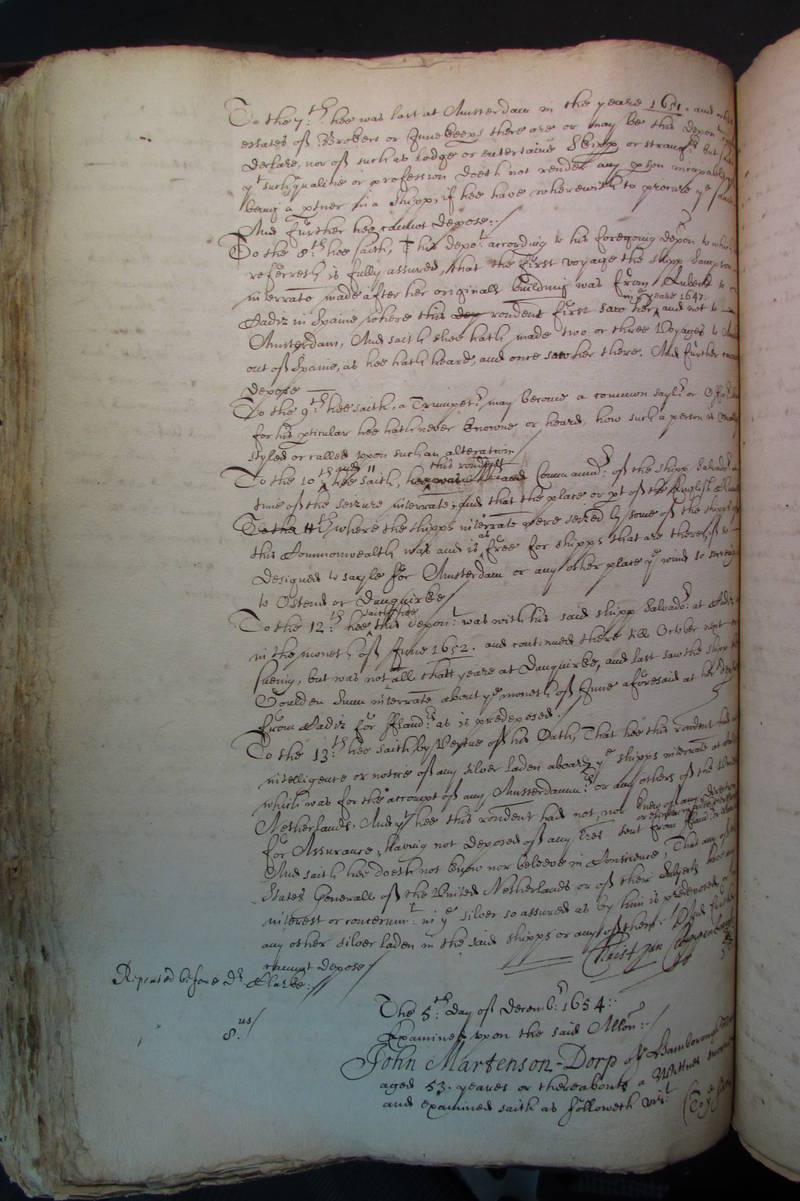 To the 7:th hee was last at Amsterdam in the yeare 1651. and what
estates of Brokers or Innekeeps there are or may be this depon.t
declare, nor of such as lodge or entertaine Skipp or strang but
y.t such qualitie or profession doeth not render any pson incapable
being a ptner in a shipp, if hee have wherewith to procure y.e same
And further hee cannot depose:./
To the 8:th hee saith, This depo.t according to his foregoing depon to w.ch hee
referreth is fully assured, that the first voyage the shipp Sampson
interrate made after her originall building was from Lubeck to
in y.e yeare 1647.
Cadiz in Spaine where this rondent first saw her, and not to
Amsterdam, And saith shee hath made two or three voyages to
out of Spaine, as hee hath heard, and once saw her there. And further cannot
depose
To the 9:th hee saith, a Trumpet.r may become a common sayl.r or
for his pticular hee hath never knowne or heard, how such a person is
styled or called upon such an alteration
To the 10:th and 11 hee saith, this rondent Commannd.r of the shipp Salvador at
time of the seizure interrate, And that the place or pt of the English
To the 11:th where the shipps interrate were seized by some of the shipps of
this Commonwealth was and is as free for shipps that are thereof
designed to sayle for Amsterdam or any other place y.e wind so
to Ostend or Dunquirke/
To the 12:th saith hee this depon.t was with his said shipp Salvado.r at Cadiz
in the moneth of June 1652. and continued there till October next
sueing, but was not all that yeare at Dunquirke, and last saw the shipp
Goulden Sunn interrate about y.e moneth of June aforesaid at her
from Cadiz for Fland.rs as is predeposed./
To the 13:th hee saith by Vertue of his Oath, That hee this rondent had
intelligence or notice of any silver laden aboard y.e shipps interrate at
which was for the accompt of any Amsterdamm.rs or any others of the United
Netherlands, And y.t hee this rondent had not, nor knew of any
for Assurance, having not deposed of any lres sent from
And saith hee doeth not know nor beleeve in Conscience, That any of
States Generall of the United Netherlands or of their subjects
interest or concernm.t in y.e silver so assured as by him is predeposed or
any other silver laden in the said shipps or any of them:. And further
cannot depose/
Repeated before D.r Clarke:./
8.us/
The 5:th day of Decemb.r 1654:.
Examined upon the said Allon:./
John Martenson-Dorp of Bamborough
aged 53. yeares or thereabouts a Wittnes
and examined saith as followeth viz.t
(To y.e first